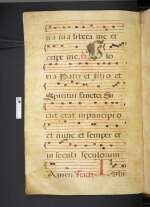 libera me et
eripe me. Glo
ria Patri et filio et
Spiritui sancto Si
cut erat in principio
et nunc et semper et
in secula seculorum
Amen.